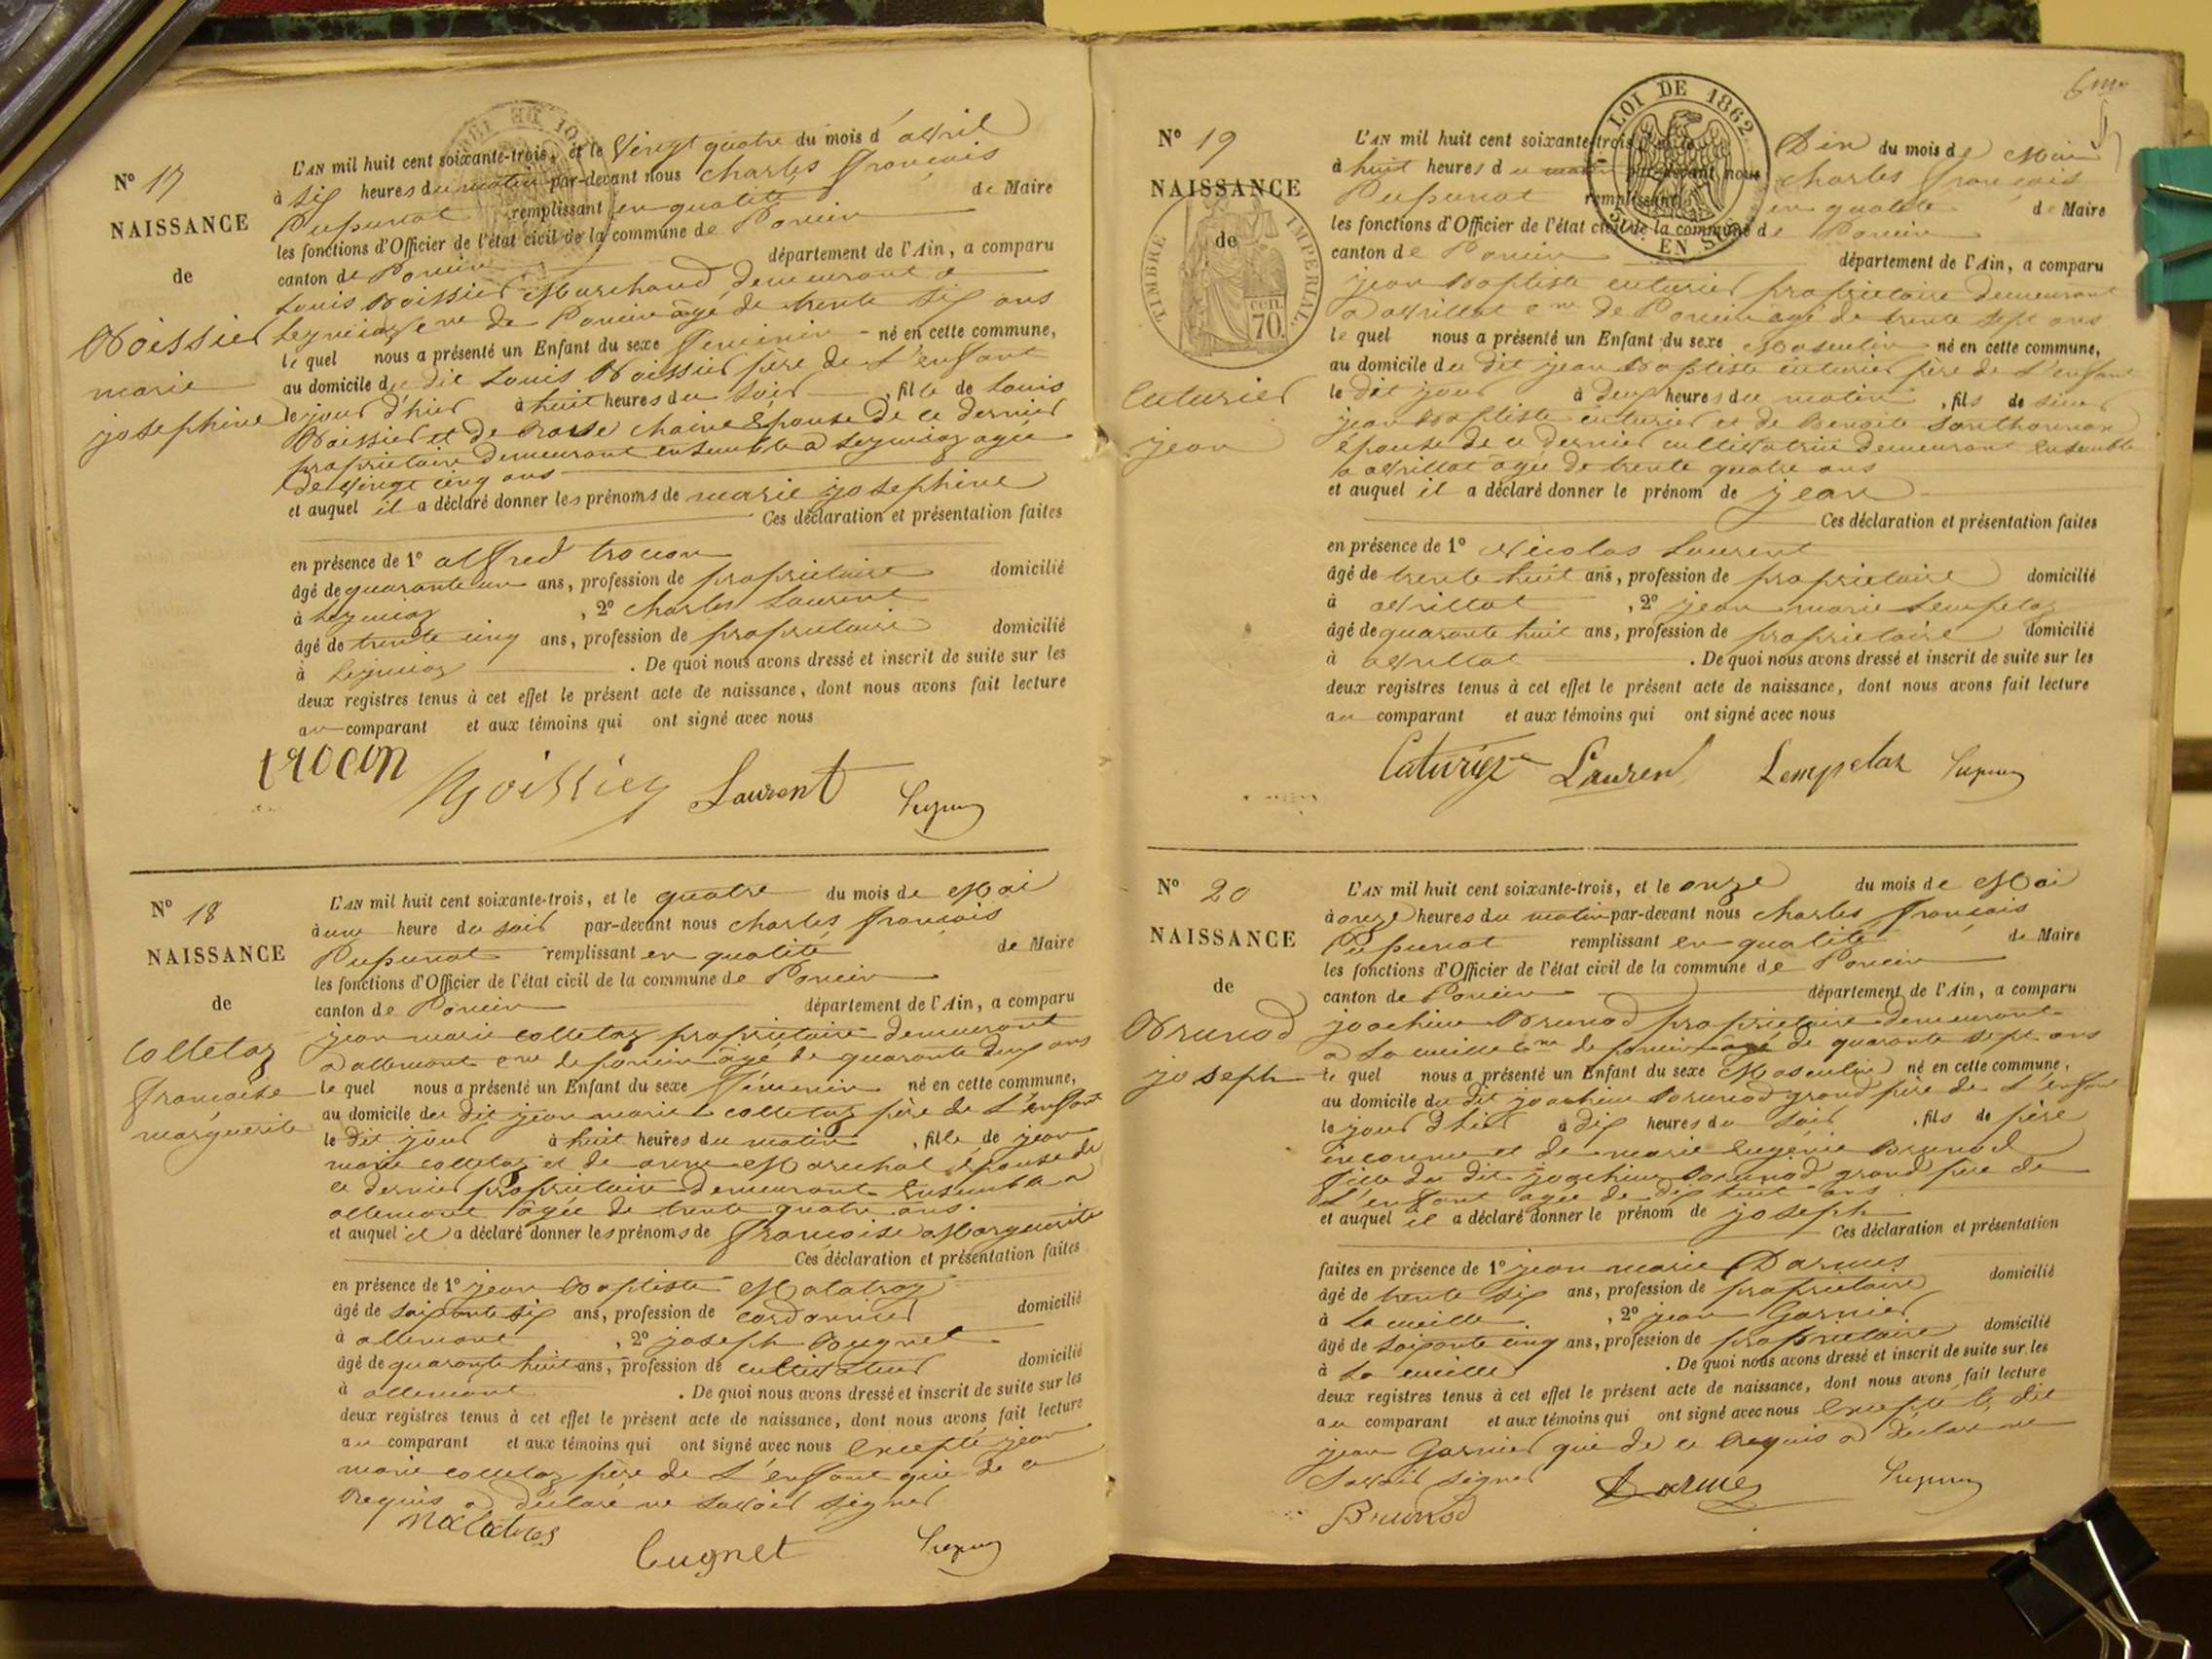 N° 17
NAISSANCE
de
Boissier
marie
josephine
L'AN mil huit cent soixante-trois, et le Vingt quatre du mois d'avril
à Six heures du matin par-devant nous Charles François
Pupunat remplissant en qualité de Maire
les fonctions d'Officier de l'état civil de la commune de Poncin
canton de Poncin département de l'Ain, a comparu
Louis Boissier Marchand demeurant a
Leymiaz cne de Poncin âgé de trente six ans
le quel nous a présenté un Enfant du sexe feminin né en cette commune,
au domicile du dit Louis Boissier père de l'enfant
le jour d'hier à huit heures du soir, fille de Louis
Boissier et de Rose épouse de ce dernier
propriétaire demeurant ensemble a Leymiaz agée
de Vingt cinq ans
et auquel il a déclaré donner les prénoms de marie josephine
Ces déclaration et présentation faites
en présence de 1° alfred trocon
âgé de quarante un ans, profession de propriétaire domicilié
à Leymiaz, 2° Charles Laurent
âgé de trente cinq ans, profession de propriétaire domicilié
à Leymiaz. De quoi nous avons dressé et inscrit de suite sur les
deux registres tenus à cet effet le présent acte de naissance, dont nous avons fait lecture
au comparant et aux témoins qui ont signé avec nous
trocon Boissier Laurent
N° 18
NAISSANCE
de
Colletaz
françoise
marguerite
L'AN mil huit cent soixante-trois, et le quatre du mois de Mai
à une heure du soir par-devant nous Charles François
Pupunat remplissant en qualité de Maire
les fonctions d'Officier de l'état civil de la commune de Poncin
canton de Poncin département de l'Ain, a comparu
jean marie colletaz propriétaire demeurant
a allement cne de poncin âgé de quarante deux ans
le quel nous a présenté un Enfant du sexe féminin né en cette commune,
au domicile du dit jean marie colletaz père de l'enfant
le dit jour à huit heures du matin, fille de jean
marie colletaz et de anne Marechal épouse de
ce dernier propriétaire demeurant ensemble a
allement agée de trente quatre ans.
et auquel il a déclaré donner les prénoms de françoise Marguerite
Ces déclaration et présentation faites
en présence de 1° jean Baptiste Malatray
âgé de soixante six ans, profession de cordonnier domicilié
à allement, 2° joseph Bugnet
âgé de quarante huit ans, profession de cultivateur domicilié
à allement. De quoi nous avons dressé et inscrit de suite sur les
deux registres tenus à cet effet le présent acte de naissance, dont nous avons fait lecture
au comparant et aux témoins qui ont signé avec nous Excepté jean
marie colletaz père de l'enfant qui de ce
Requis a déclaré ne savoir signer
Bugnet
N° 19
NAISSANCE
de
TIMBRE IMPERIAL
70 cen.
Cuturier
jean
LOI DE 1862
L'AN mil huit cent soixante-trois, et le Dix du mois de Mai
à huit heures du matin par-devant nous Charles François
Pupunat remplissant en qualité de Maire
les fonctions d'Officier de l'état civil de la commune de Poncin
canton de Poncin département de l'Ain, a comparu
jean Baptiste cuturier propriétaire demeurant
a avrillat cne de Poncin agé de trente sept ans
le quel nous a présenté un Enfant du sexe Masculin né en cette commune,
au domicile du dit jean Baptiste cuturier père de l'enfant
le dit jour à deux heures du matin, fils de sieur
jean Baptiste cuturier et de Benoite Santhonnax
épouse de ce dernier cultivatrice demeurant ensemble
a avrillat agée de trente quatre ans
et auquel il a déclaré donner le prénom de jean
Ces déclaration et présentation faites
en présence de 1° Nicolas Laurent
âgé de trente huit ans, profession de propriétaire domicilié
à avrillat, 2° jean marie Lempelaz
âgé de quarante huit ans, profession de propriétaire domicilié
à avrillat. De quoi nous avons dressé et inscrit de suite sur les
deux registres tenus à cet effet le présent acte de naissance, dont nous avons fait lecture
au comparant et aux témoins qui ont signé avec nous
Cuturier Laurent Lempelaz
N° 20
NAISSANCE
de
Brunod
joseph
L'AN mil huit cent soixante-trois, et le onze du mois de Mai
à onze heures du matin par-devant nous Charles François
Pupunat remplissant en qualité de Maire
les fonctions d'Officier de l'état civil de la commune de Poncin
canton de Poncin département de l'Ain, a comparu
joachim Brunod propriétaire demeurant
a La cueille cne de poncin âgé de quarante sept ans
le quel nous a présenté un Enfant du sexe Masculin né en cette commune,
au domicile du dit joachim Brunod grand père de l'enfant
le jour d'hier à dix heures du soir, fils de père
inconnu et de marie Eugénie Brunod
fille du dit joachim Brunod grand père de
l'enfant agée de dix huit ans
et auquel il a déclaré donner le prénom de joseph
Ces déclaration et présentation
faites en présence de 1° jean marie Darmes
âgé de trente six ans, profession de propriétaire domicilié
à La cueille, 2° jean Garnier
âgé de soixante cinq ans, profession de propriétaire domicilié
à La cueille. De quoi nous avons dressé et inscrit de suite sur les
deux registres tenus à cet effet le présent acte de naissance, dont nous avons fait lecture
au comparant et aux témoins qui ont signé avec nous Excepté le dit
jean Garnier qui de ce Requis a déclaré ne
savoir signer
Brunod Darmes